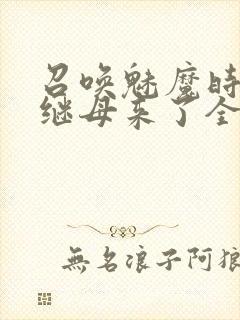 召唤魅魔时
继母来了全
無名浪子阿狼